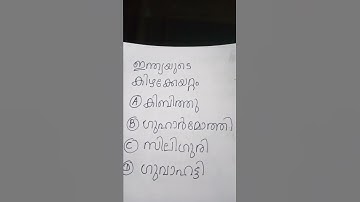 ഇന്ത്യയുടെ
കിഴക്കേയറ്റം
Ⓐ കിബിത്തു
Ⓑ ഗുഹാർമോത്തി
Ⓒ സിലിഗുരി
Ⓓ ഗുവാഹട്ടി